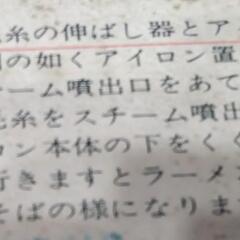 糸の伸ばし器とア
の如くアイロン置
ーム噴出口をあて
糸をスチーム噴出
ロン本体の下をくぐ
行きますとラーメン
そばの様になりま